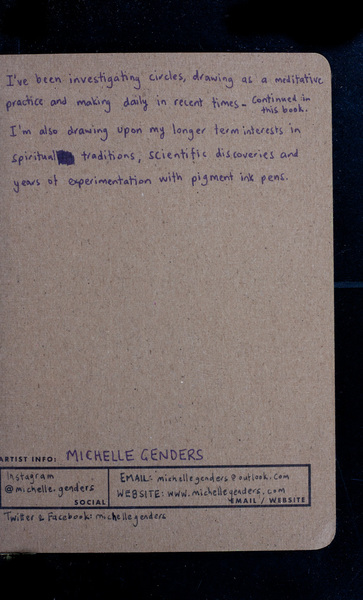 I've been investigating circles, drawing as a meditative
practice and making daily in recent times - Continued in
this book.
I'm also drawing upon my longer term interests in
spiritual traditions, scientific discoveries and
years of experimentation with pigment ink pens.
ARTIST INFO: MICHELLE GENDERS
Instagram
@michelle.genders
SOCIAL
EMAIL: michellegenders@outlook.com
WEBSITE: www.michellegenders.com
EMAIL / WEBSITE
Twitter & Facebook: michellegenders